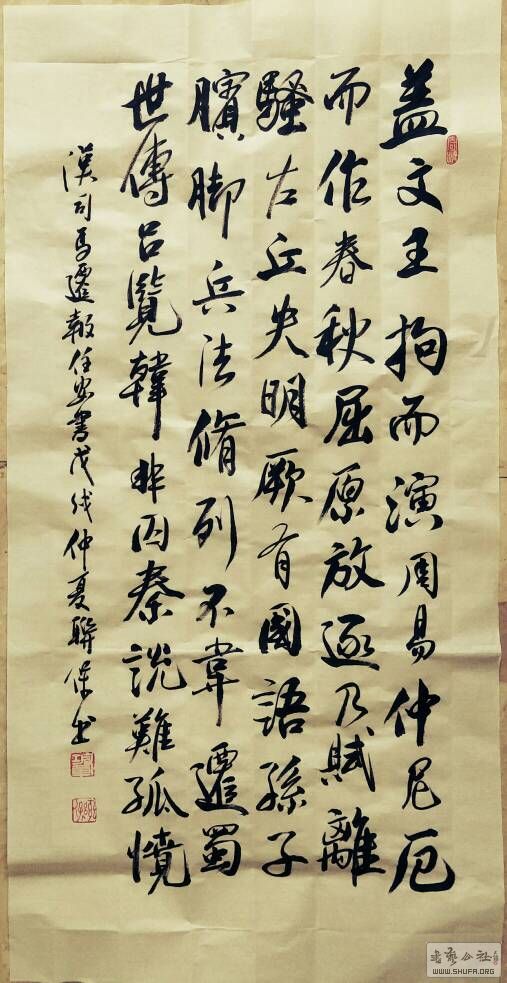 盖文王拘而演周易仲尼厄
而作春秋屈原放逐乃賦離
騷左丘失明厥有國語孫子
臏脚兵法脩列不韋遷蜀
世傳吕覽韓非囚秦説難孤憤
漢司馬遷報任安書戊戌仲夏聯保书
书艺公社
WWW.SHUFA.ORG